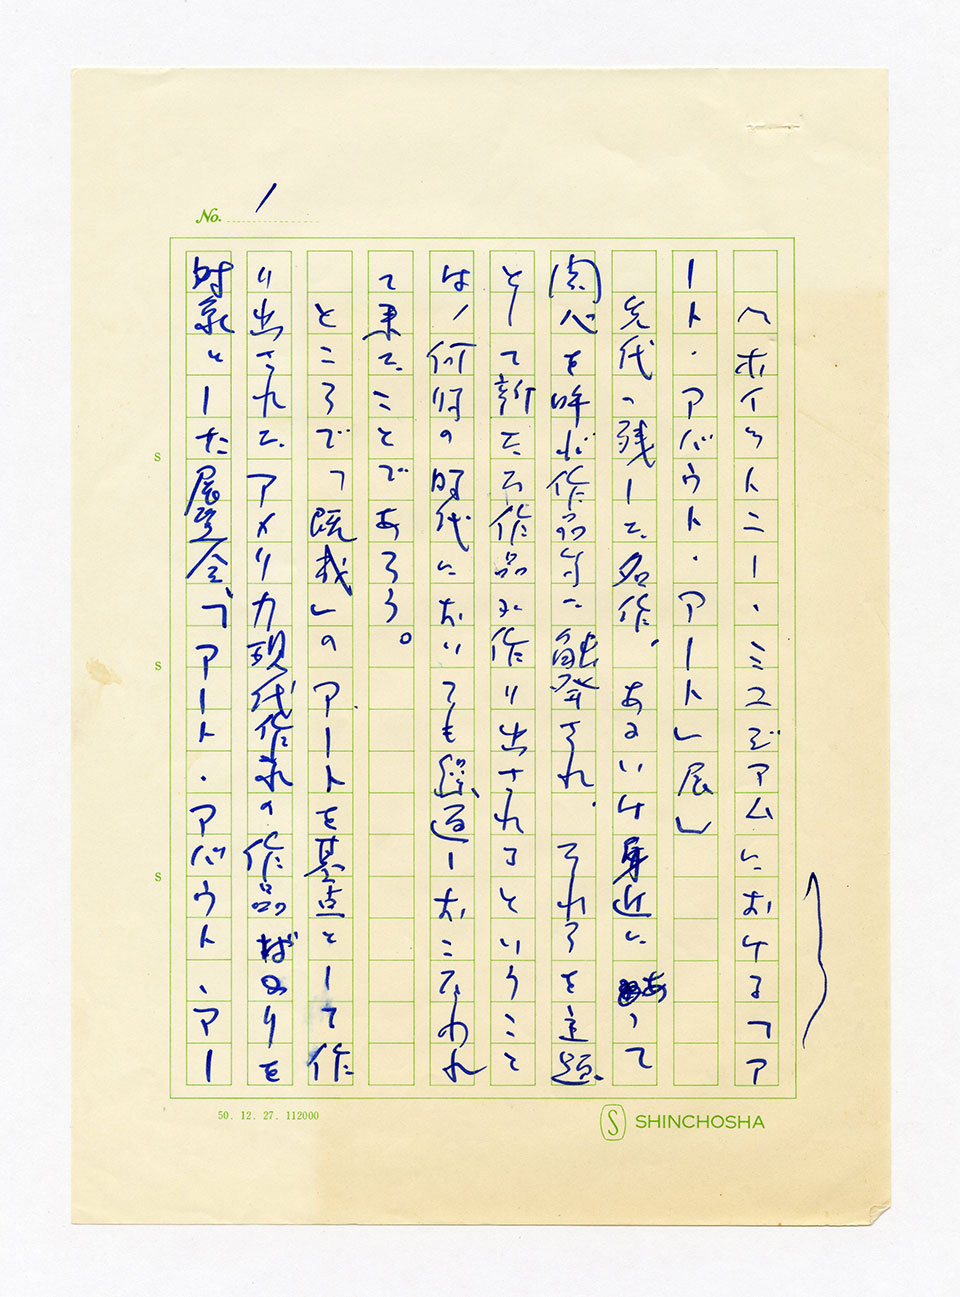 No. 1
「ホイットニー・ミュゼアムにおける「ア
ート・アバウト・アート」展」
先代の残した名作、あるいは身近にあって
関心を呼ぶ作品等に触発され、それらを主題
として新たな作品が作り出されるということ
は、何時の時代においても繰返しおこなわれ
て来たことであろう。
ところで「既成」のアートを基点として作
り出された、アメリカ現代作家の作品ばかりを
対象とした展覧会、「アート・アバウト・アー
S
S
S
50. 12. 27. 112000
S SHINCHOSHA